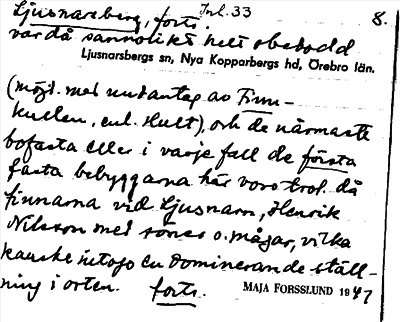 Ljusnarsberg, forts. Inl. 33 8.
var då sannolikt helt obebodd
Ljusnarsbergs sn, Nya Kopparbergs hd, Örebro län.
(möjl. med undantag av Finn-
kullen, enl. Hult), och de närmaste
bofasta eller i varje fall de första
fasta bebyggarna här voro trol. då
finnarna vid Ljusnarn, Henrik
Nilsson med söner o. mågar, vilka
kanske intogo en dominerande ställ-
ning i orten. forts.
MAJA FORSSLUND 1947